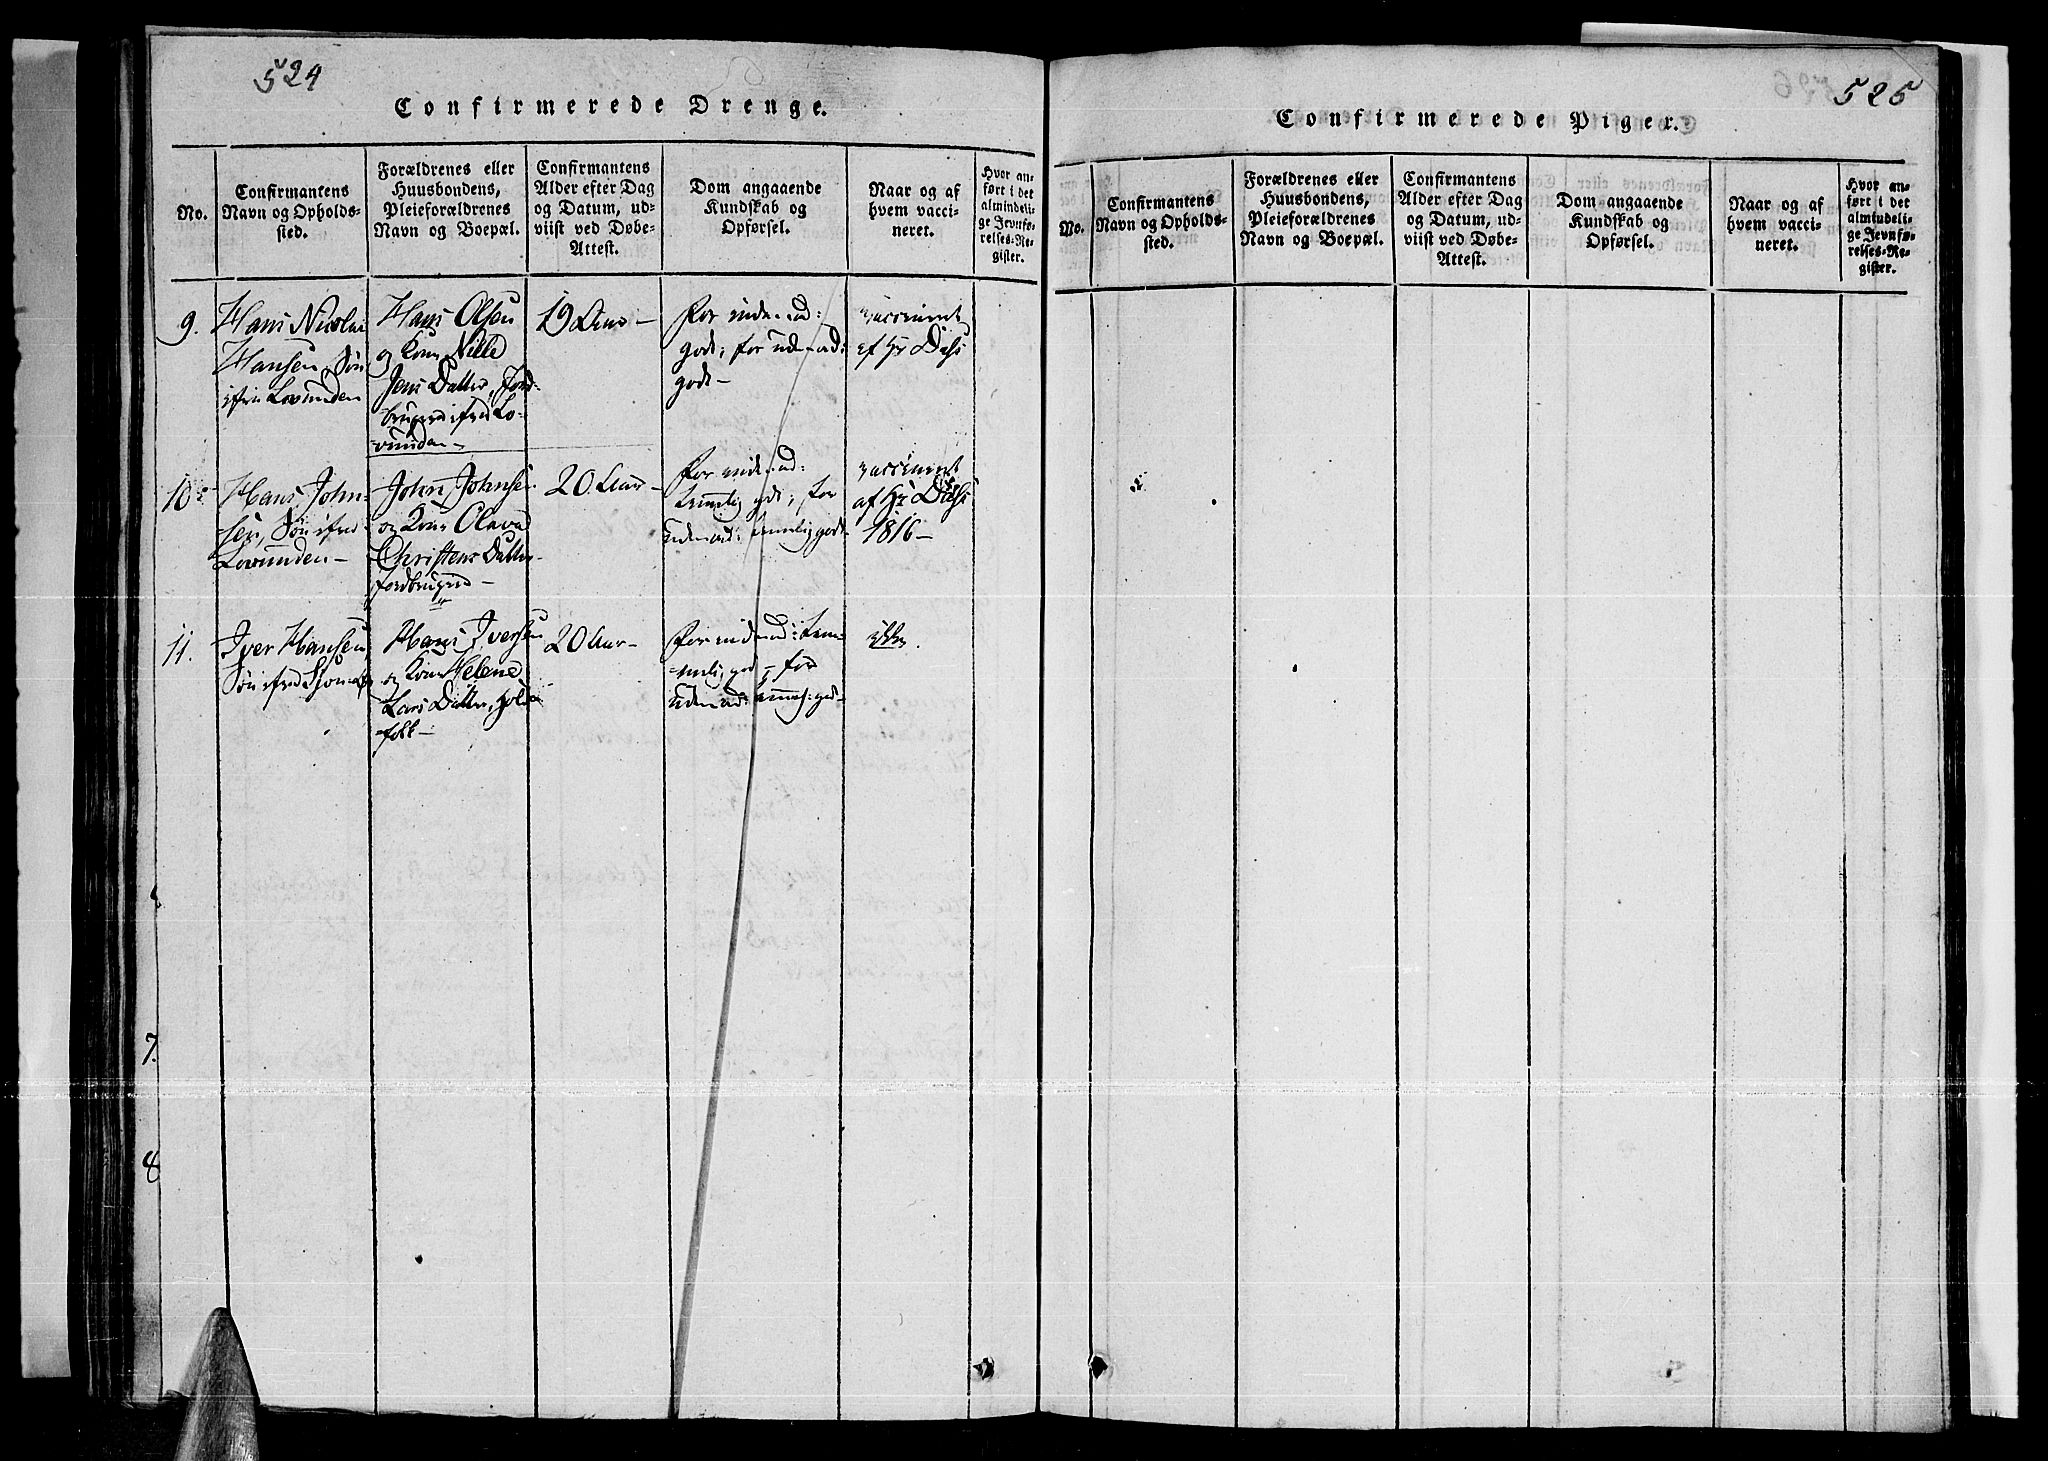 524
Confirmerede Drenge.
No.
Confirmantens
Navn og Opholds-
sted.
Forældrenes eller
Huusbondens,
Pleieforældrenes
Navn og Boepæl.
Confirmantens
Alder efter Dag
og Datum, ud-
viist ved Døbe-
Attest.
Dom angaaende
Kundskab og
Opførsel.
Naar og af
hvem vacci-
neret.
Hvor an-
ført i det
almindeli-
ge Jevnfø-
relses-Re-
gister.
9.
Hans Nicolai
Hansen, Søn
ifra Lovunden
Hans Olsen
og Kone Nille
Jens Datter, Jord-
brugere ifra Lo-
vunden-
19 Aar-
For
god; for
god-
vaccineret
af Hr
10
Hans John-
sen, Søn ifra
Lovunden-
John Johnsen
og Kone Olava
Christens Datter
Jordbrugere-
20 Aar-
For
temelig god; for
temelig god-
vaccineret
af Hr
1816-
11.
Iver Hansen,
Søn ifra
Hans Iversen
og Kone Helene
Lars Datter,
folk-
20 Aar-
For
god; for
god-
ikke.
7.
8
525
Confirmerede Piger.
No.
Confirmantens
Navn og Opholds-
sted.
Forældrenes eller
Huusbondens,
Pleieforældrenes
Navn og Boepæl.
Confirmantens
Alder efter Dag
og Datum, ud-
viist ved Døbe-
Attest.
Dom angaaende
Kundskab og
Opførsel.
Naar og af
hvem vacci-
neret.
Hvor an-
ført i det
almindeli-
ge Jevnfø-
relses-Re-
gister.